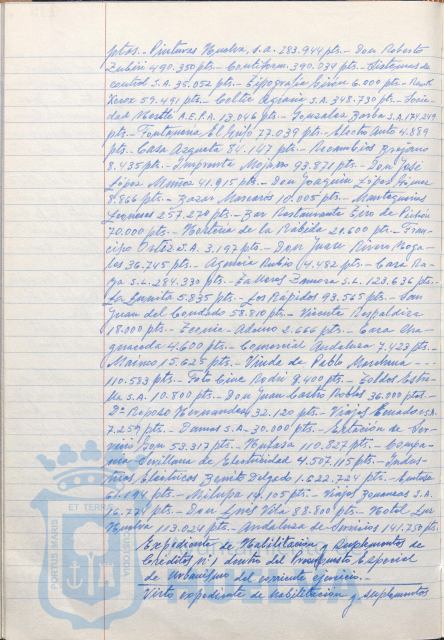 ptas.- Pinturas Huelva, s.a. 283.944 pts.- Don Roberto
Zubiri 490.350 pts.- Contiform. 390.034 pts.- Sistemas de
control S.A. 35.052 pts.- Tipografía Girón 6.000 pts.- Rank
Xerox 59.491 pts.- Celtic Agraria S.A. 348.730 pts.- Socie-
dad Nestlé A.E.P.A. 13.046 pts.- Gonzalez Barba S.A. 174.249
pts.- Fontaneria El Grifo 77.039 pts.- Electro Auto 4.889
pts.- Casa Azqueta 84.147 pts.- Recambios
8.435 pts.- Imprenta Mojarro 93.871 pts.- Don José
López Muñoz 41.915 pts.- Don Joaquin López Gómez
8.866 pts.- Bazar Mascarós 10.005 pts.- Mantequerias
Leonesas 257.270 pts.- Bar Restaurante Giro de Peikin
70.000 pts.- Hosteria de la Rábida 21.600 pts.- Fran-
cisco Ortiz S.A. 3.197 pts.- Don Juan Rivera Noga-
les 36.745 pts.- Agencia Rubio 14.482 pts.- Casa Ra-
ya S.L. 284.330 pts.- Talleres Zamora S.L. 123.636 pts.-
La Bonita 5.835 pts.- Los Rápidos 93.565 pts.- San
Juan del Condado 58.810 pts.- Vicente Respaldiza
18.000 pts.- Adamo 2.666 pts.- Casa
4.600 pts.- Comercial Andaluza 7.423 pts.
Maimo 15.625 pts.- Viuda de Pablo
110.583 pts.- Foto Cine Rodri 9.400 pts.- Toldos Estre-
lla S.A. 10.800 pts.- Don Juan Castro Robles 36.000 ptas.-
Dª Reposo Hernandez 32.120 pts.- Viajes Ecuador S.A.
7.259 pts.- Damas S.A. 30.000 pts.- Estación de Ser-
vicio 53.317 pts.- Huibasa 110.827 pts.- Compa-
ñia Sevillana de Electricidad 4.507.115 pts.- Indus-
trias Electricas Benito Delgado 1.622.724 pts.-
61.194 pts.- Milupa 14.105 pts.- Viajes S.A.
16.771 pts.- Don Vela 88.800 pts.- Hotel Luz
Huelva 113.024 pts.- Andaluza de Servicios 141.750 pts.
Expediente de Habilitación y Suplementos de
Créditos nº 1 dentro del Presupuesto Especial
de Urbanismo del corriente ejercicio.-
Visto expediente de habilitación y suplementos
PORTUS MARIS
ET TERRAE
CUSTODIA